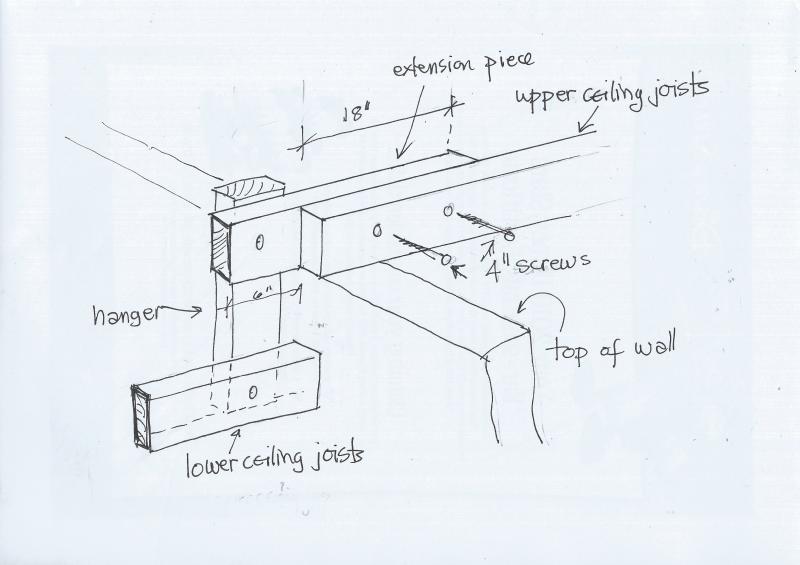 extension piece
18"
upper ceiling joists
4" screws
6"
hanger
top of wall
lower ceiling joists